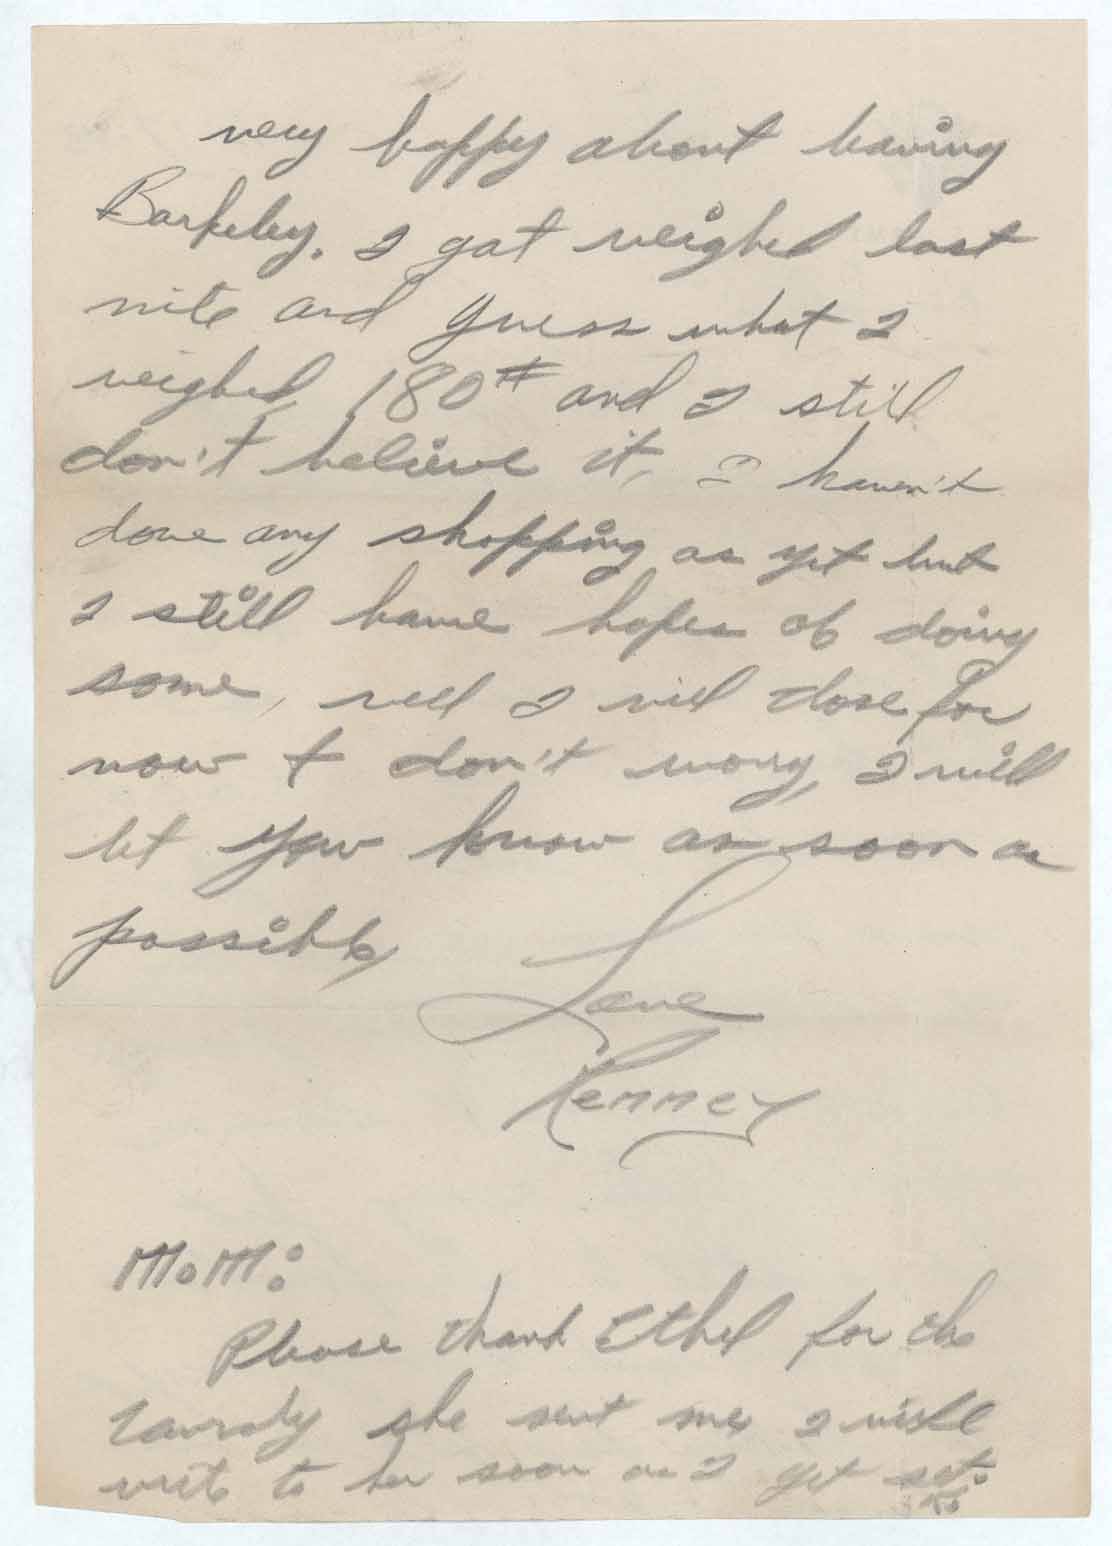 very happy about having
Barkeley. I got weighed last
nite and guess what I
weighed, 180# and I still
don't believe it, I haven't
done any shopping as yet but
I still have hopes of doing
some, well I will close for
now + don't worry, I will
let you know as soon as
possible,
Love
Kenney
M.M:
Please thank Ethel for the
she sent me, I will
write to her soon as I get set.